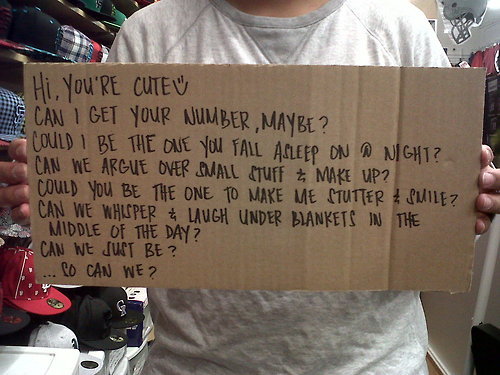 Hi, YOU'RE CUTE
CAN I GET YOUR NUMBER, MAYBE?
COULD I BE THE ONE YOU FALL ASLEEP ON @ NIGHT?
CAN WE ARGUE OVER SMALL STUFF & MAKE UP?
COULD YOU BE THE ONE TO MAKE ME STUTTER & SMILE?
CAN WE WHISPER & LAUGH UNDER BLANKETS IN THE
MIDDLE OF THE DAY?
CAN WE JUST BE?
... SO CAN WE?